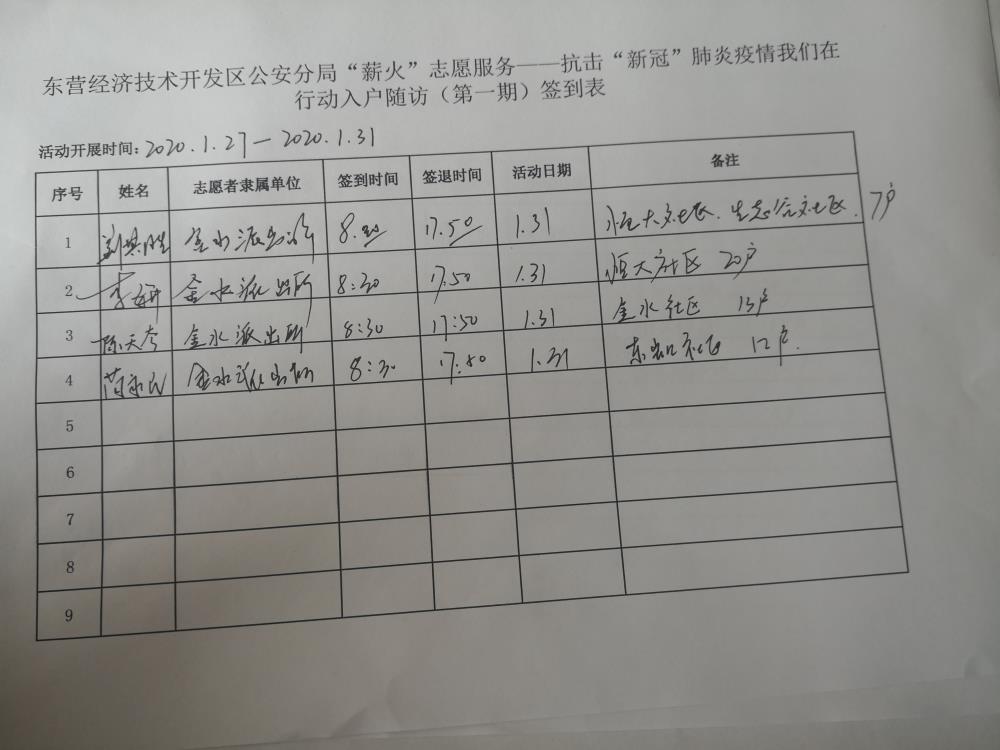 东营经济技术开发区公安分局“薪火”志愿服务——抗击“新冠”肺炎疫情我们在
行动入户随访（第一期）签到表
活动开展时间：2020.1.27—2020.1.31
序号 姓名 志愿者隶属单位 签到时间 签退时间 活动日期 备注
1 金水派出所 17.50 1.31 恒大社区. 生态谷社区. 7户
2 李妍 金水派出所 8:30 17.50 1.31 恒大社区 20户
3 陈天秀 金水派出所 8:30 17:50 1.31 金水社区
4 金水派出所 8:30 17:50 1.31 12户.
5
6
7
8
9